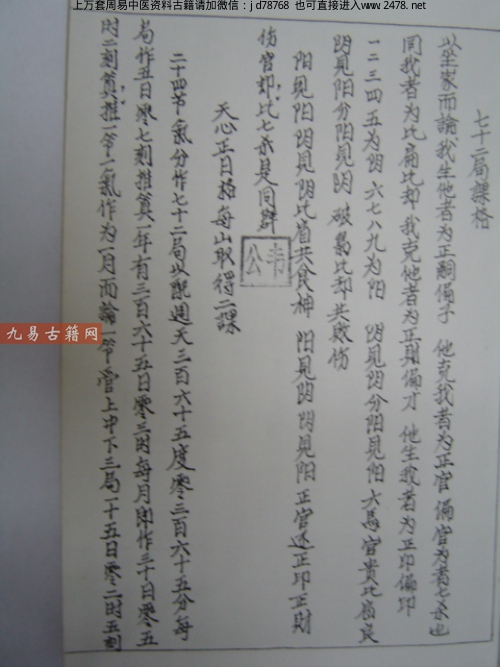 上万套周易中医资料古籍请加微信：jd78768 也可直接进入www.2478.net
七十二局課格
以坐家而論我生他者為正嗣偏子 他克我者為正官 偏官為者七杀也
同我者為比肩比却 我克他者為正財偏才 他生我者為正印偏印
一二三四五为阴 六七八九为阳 阴見阴分陽見陽 六馬官貴比肩良
阴見阳分阳見阴 破易比却共败伤
阳見阳 阴見阴比肩共食神 阳見阴 阴見阳 正官还正印正財
伤官却比七杀是同群
韦公
天心正日格每山取得二課
二十四节氣分作七十二局以配週天三百六十五度零三百六十五分每
局作五日零七刻推算一年有三百六十五日零三时每月闲作三十日零五
时二刻算推一节一氣作为一月而論一节管上中下三局一十五日零二时五刻
九易古籍网